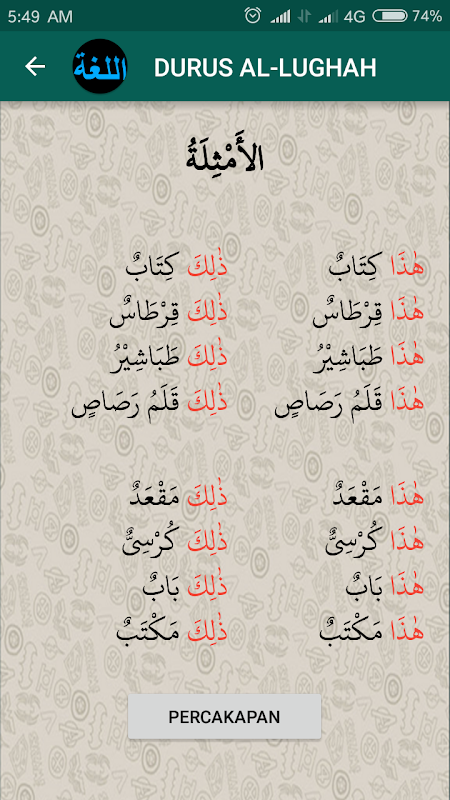 5:49 AM 4G 74%
اللغة DURUS AL-LUGHAH
الأَمْثِلَةُ
هٰذَا كِتَابٌ ذٰلِكَ كِتَابٌ
هٰذَا قِرْطَاسٌ ذٰلِكَ قِرْطَاسٌ
هٰذَا طَبَاشِيْرُ ذٰلِكَ طَبَاشِيْرُ
هٰذَا قَلَمُ رَصَاصٍ ذٰلِكَ قَلَمُ رَصَاصٍ
هٰذَا مَقْعَدٌ ذٰلِكَ مَقْعَدٌ
هٰذَا كُرْسِىٌّ ذٰلِكَ كُرْسِىٌّ
هٰذَا بَابٌ ذٰلِكَ بَابٌ
هٰذَا مَكْتَبٌ ذٰلِكَ مَكْتَبٌ
PERCAKAPAN